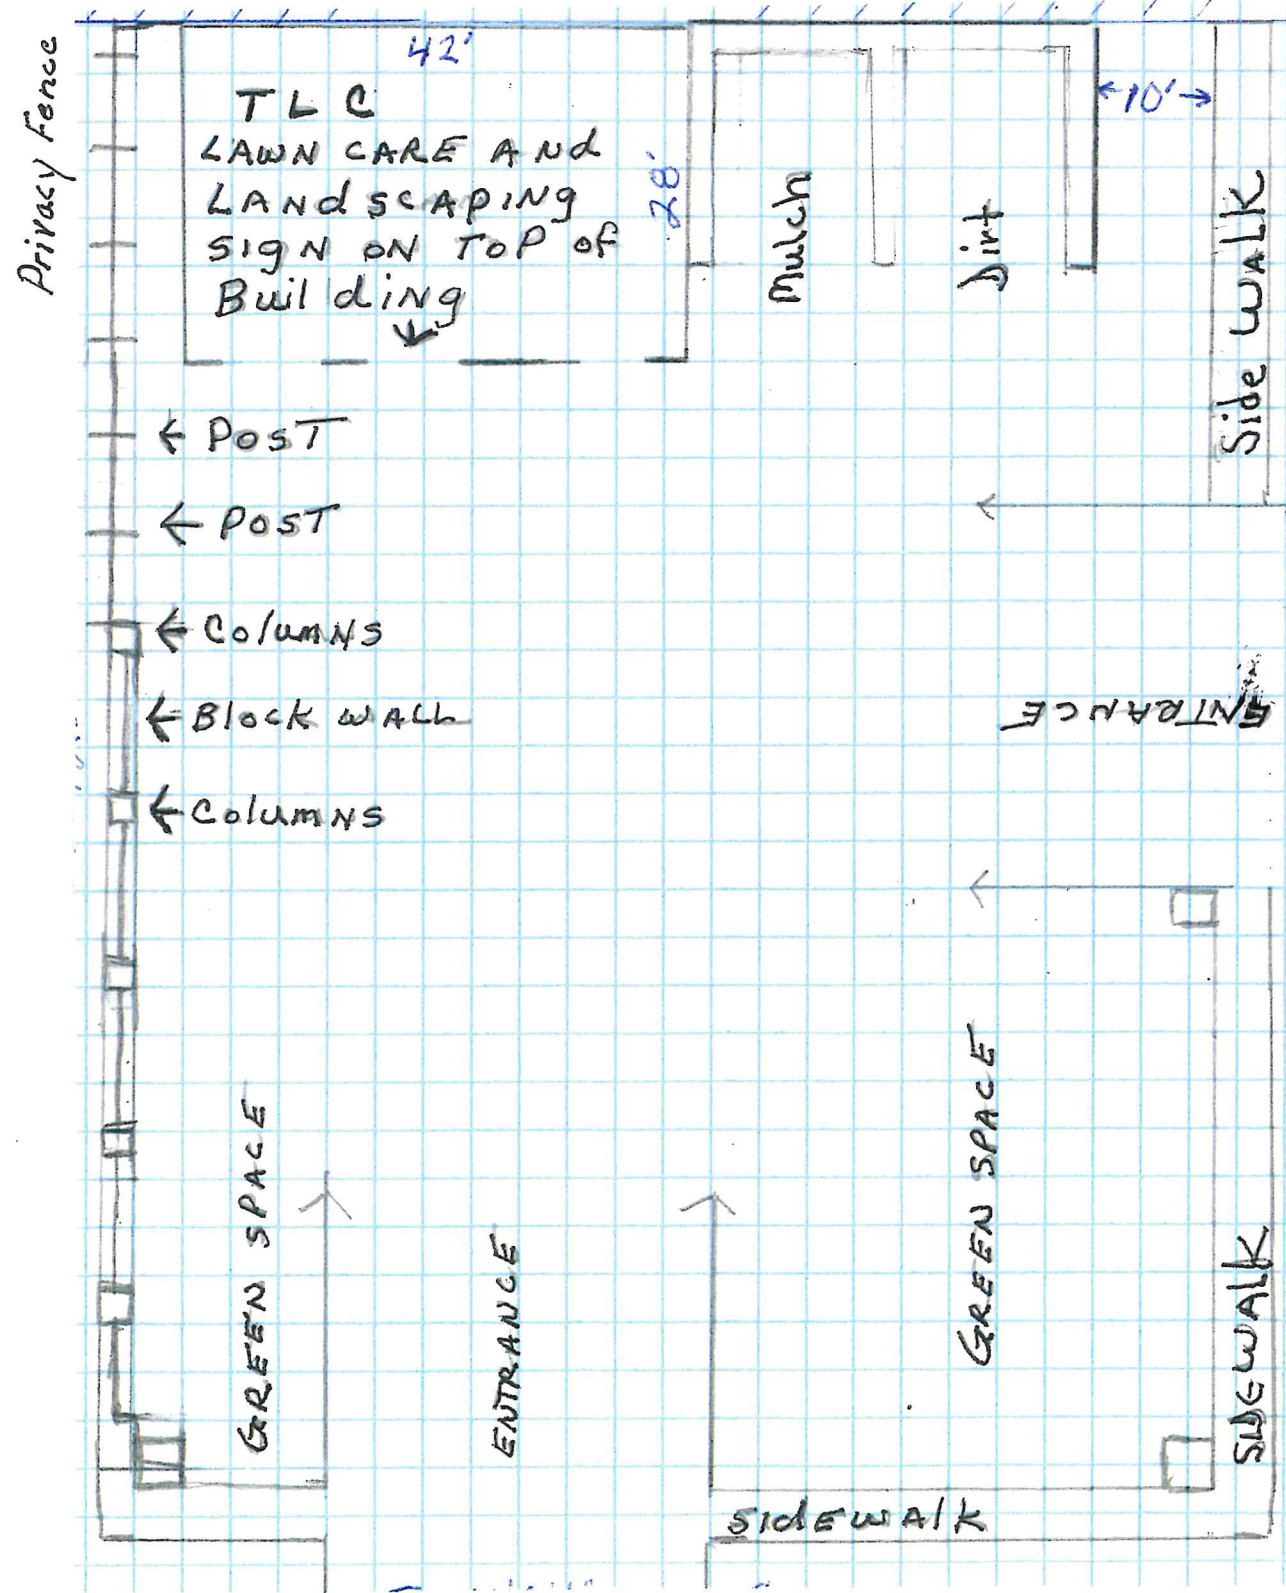 Privacy Fence
42'
TLC
LAWN CARE AND
LANdSCAPING
SIGN ON TOP OF
BuildiNg
28'
Mulch
Dirt
10'
Side WALK
POST
POST
ColumNS
Block WALL
ColumNS
ENTRANCE
GREEN SPACE
ENTRANCE
GREEN SPACE
SIDEWALK
SIdEWAlK